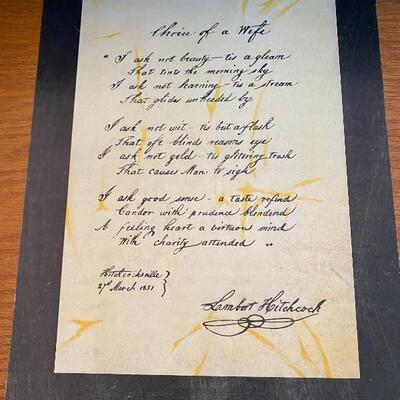 Choice of a Wife
"I ask not beauty - tis a gleam
That tints the morning sky
I ask not learning - tis a stream
That glides unheeded by
I ask not wit - tis but a flash
That oft blinds reasons eye
I ask not gold - tis glittering trash
That causes Man to sigh
I ask good sense - a taste refind
Candor with prudence blendend
A feeling heart a virtuous mind
With charity attended "
Hitchcocksville }
27th March 1831 }
Lambert Hitchcock